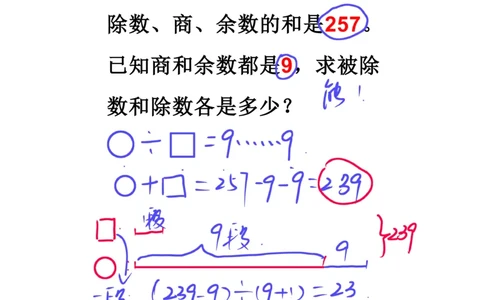 除数、商、余数的和是257。
已知商和余数都是9,求被除
数和除数各是多少?
○÷□=9……9
○+□=257-9-9=239
一段
9段
9
239
一段 (239-9)÷(9+1)=23